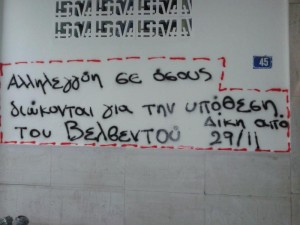 45
Αλληλεγγύη σε όσους
διώκονται για την υπόθεση
του Βελβεντού Δίκη από
29/11